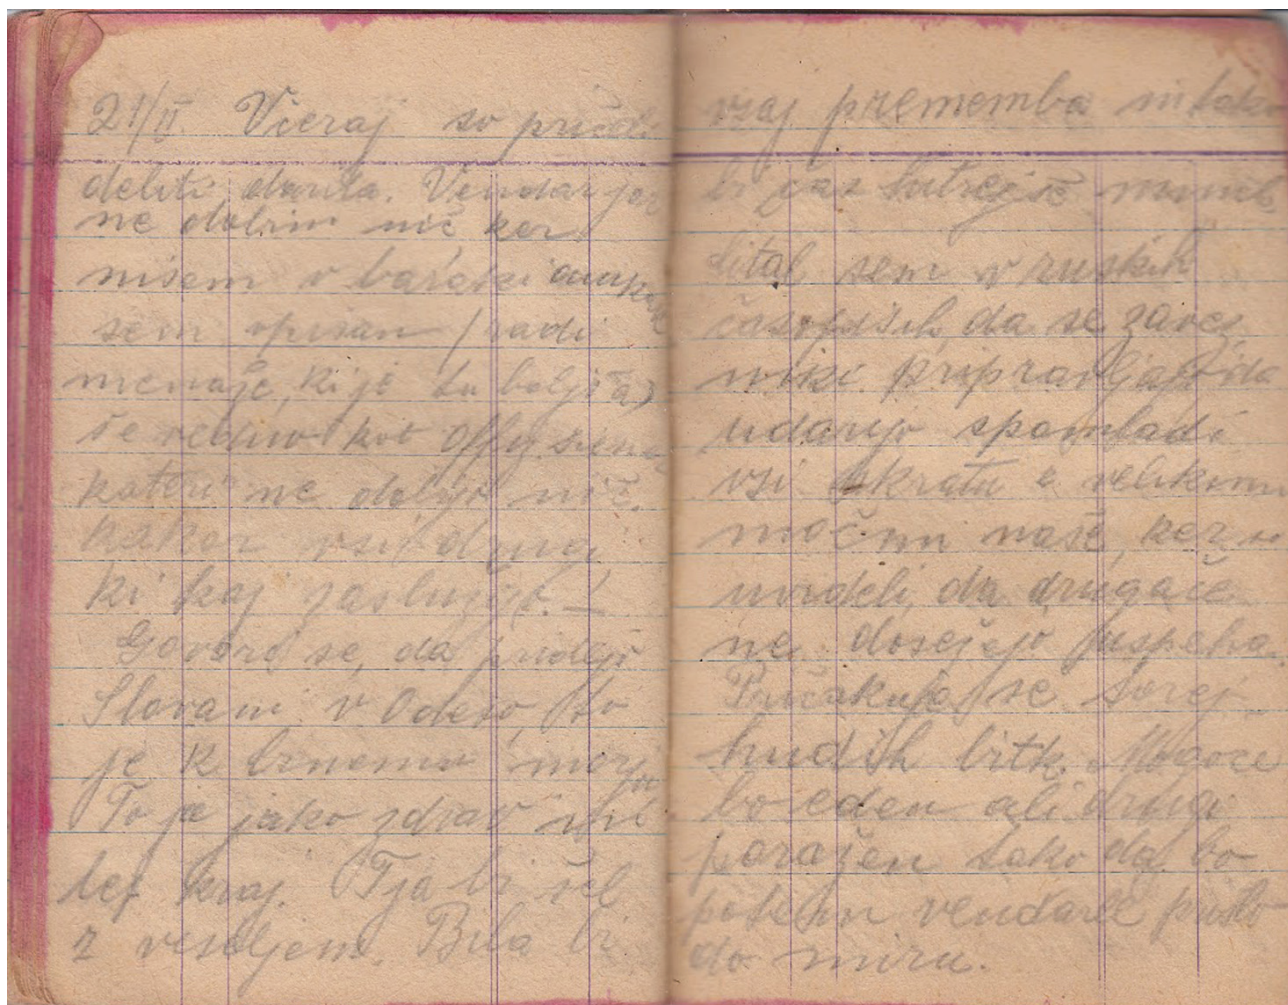 21/II. Včeraj so pričeli
deliti darila. Vendar jaz
ne dobim nič ker
nisem v baraki amkak
sem opisan (radi
menaje, ki je tu boljša)
še vedno kot
kateri ne dobijo nič.
kakor vsi drugi,
ki kaj zaslužijo. —
Govori se, da pridejo
Slovani v Odeso, to
je k črnemu morju
To je jako zdrav in
lep kraj. Tja bi šel
z veseljem. Bila bi
vsaj prememba in tako
bi čas hitrejše minil.
Čital sem v ruskih
časopisih, da se zavez
niki pripravljajo da
udarijo spomladi
vsi skratu z velikimi
močmi naše, ker so
uvideli, da drugače
ne dosežejo uspeha.
Pričakuje se torej
hudih bitk. Mogoče
bo eden ali drugi
poražen tako da bo
potem vendarle prišlo
do miru.